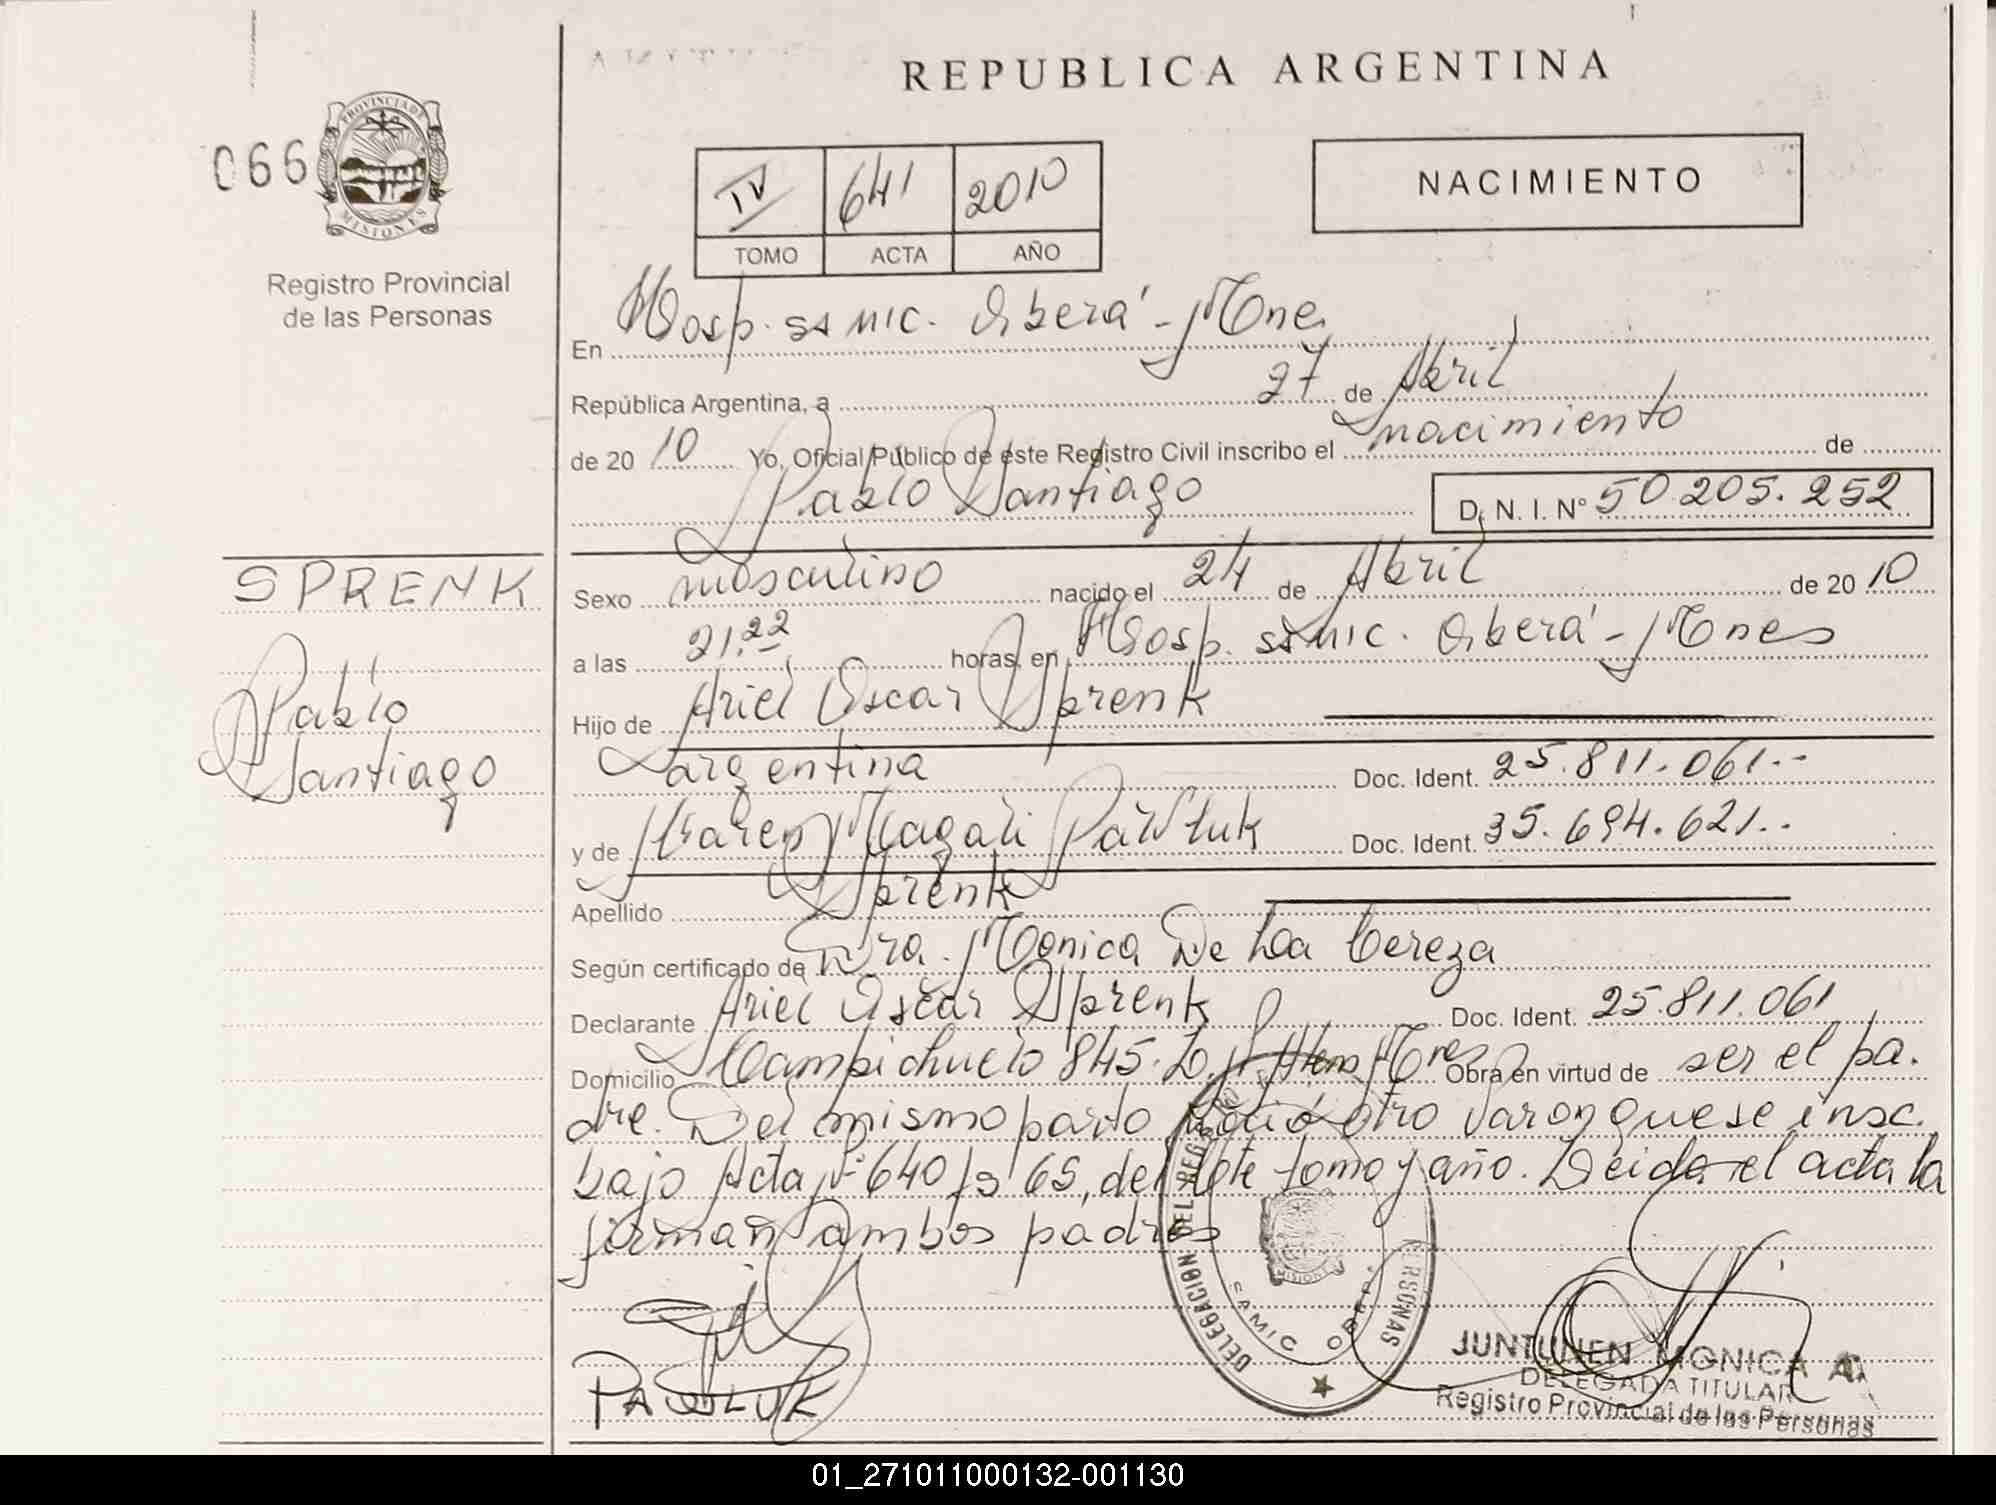 REPUBLICA ARGENTINA
066
PROVINCIA DE
MISIONES
Registro Provincial
de las Personas
IV 641 2010
TOMO ACTA AÑO
NACIMIENTO
En Hosp. SAMIC. Oberá - Mnes
República Argentina, a 27 de Abril
de 20 10 Yo, Oficial Público de este Registro Civil inscribo el nacimiento de
Pablo Santiago D. N. I. N° 50.205.252
SPRENK
Pablo
Santiago
Sexo masculino nacido el 24 de Abril de 20 10
a las 21.22 horas, en Hosp. SAMIC. Oberá - Mnes
Hijo de Ariel Oscar Sprenk
Argentina Doc. Ident. 25.811.061.--
y de Karen Magali Pawluk Doc. Ident. 35.694.621.-
Apellido Sprenk
Según certificado de Dra. Monica De La Cereza
Declarante Ariel Oscar Sprenk Doc. Ident. 25.811.061
Domicilio Campichuelo 845. L. N. Alem Mnes Obra en virtud de ser el pa.
dre. Del mismo parto nació otro varon que se insc.
bajo Acta N° 640 fs 65, del este tomo y año. Leida el acta la
firman ambos padres
DELEGACION DEL REG PERSONAS
SAMIC OBERA
MISIONES
PAWLUK
JUNTUNEN MONICA A.
DELEGADA TITULAR
Registro Provincial de las Personas
01_271011000132-001130